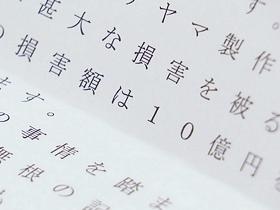 す。
ヤマ製作
甚大な損害を被る
の損害額は10億円
ます。
の事情を踏ま
無根の記